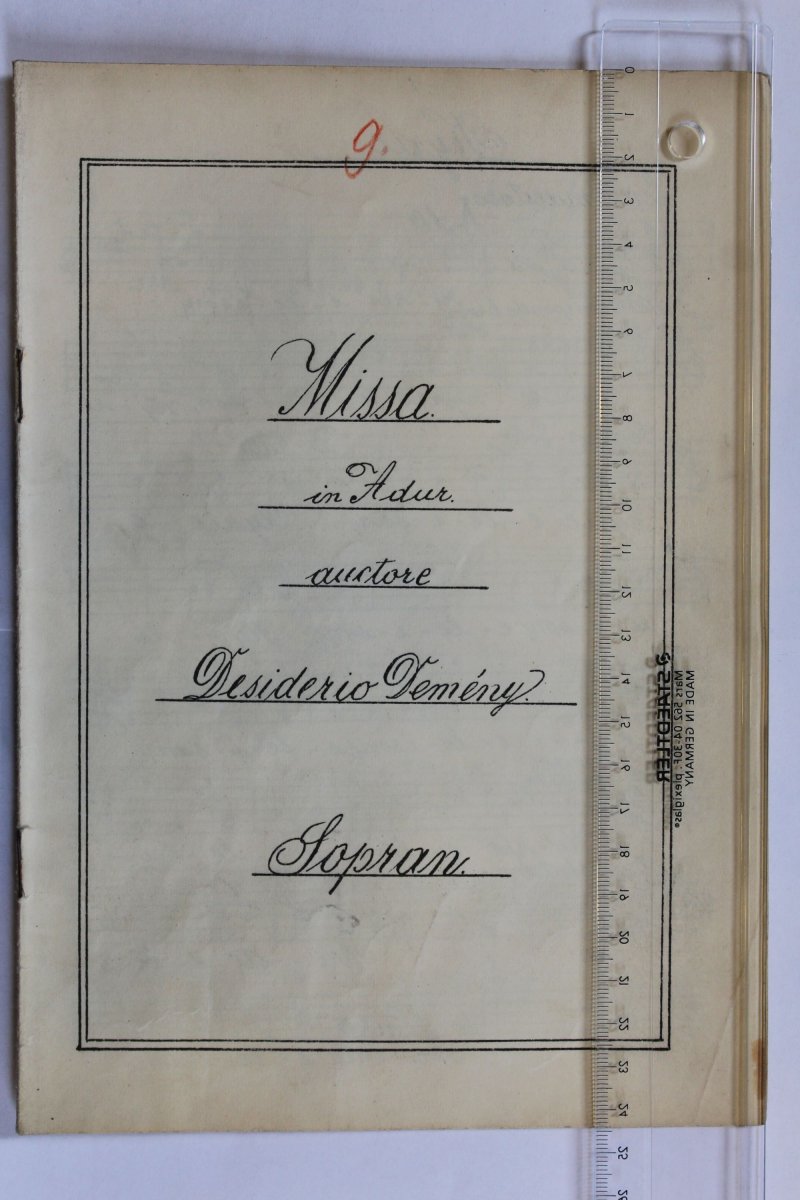 9.
Missa.
in Adur.
auctore
Desiderio Demény.
Sopran.
0
1
2
3
4
5
6
7
8
9
10
11
12
13
14
15
16
17
18
19
20
21
22
23
24
25
STAEDTLER
Mars 562 04-30F: plexiglas®
MADE IN GERMANY